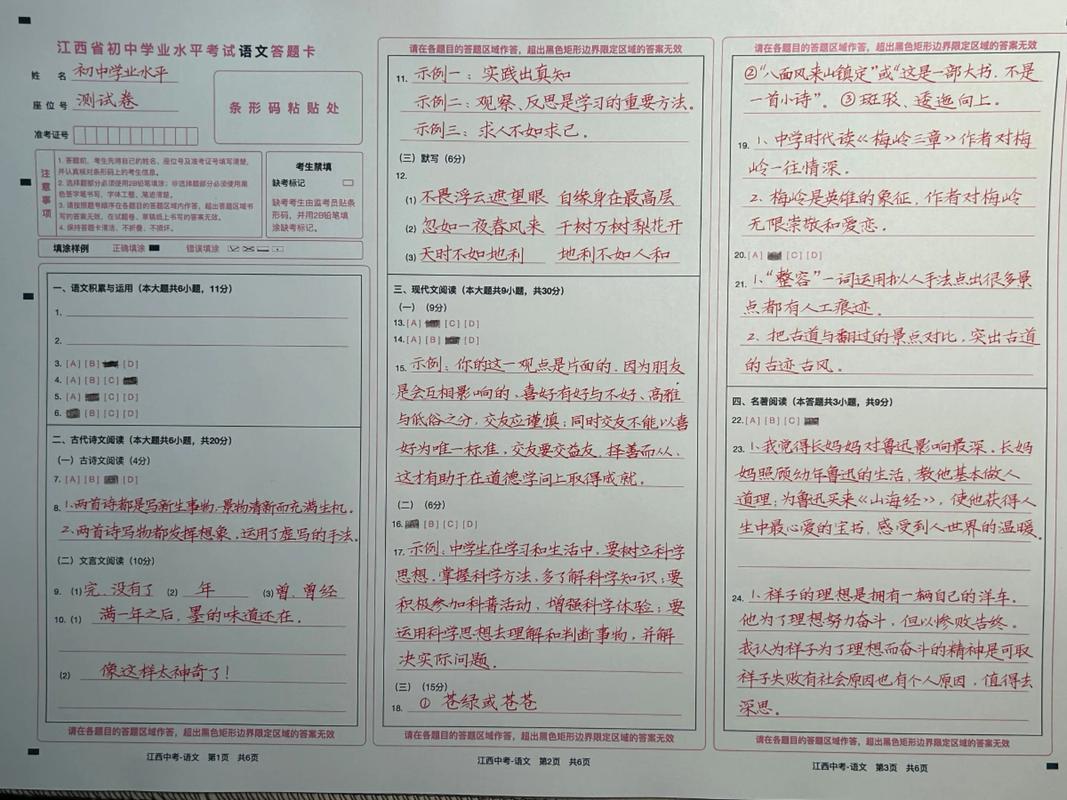 江西省初中学业水平考试语文答题卡
姓 名 初中学业水平
座位号 测试卷
准考证号
条形码粘贴处
注意事项
1. 答题前，考生先将自己的姓名、座位号及准考证号填写清楚，
并认真核对条形码上的考生信息。
2. 选择题部分必须使用2B铅笔填涂；非选择题部分必须使用黑
色签字笔书写，字体工整、笔迹清楚。
3. 请按照题号顺序在各题目的答题区域内作答，超出答题区域书
写的答案无效，在试题卷、草稿纸上书写的答案无效。
4. 保持答题卡清洁，不折叠、不损坏。
考生禁填
缺考标记
缺考考生由监考员贴条
形码，并用2B铅笔填
涂缺考标记。
填涂样例 正确填涂 错误填涂
一、语文积累与运用（本大题共6小题，11分）
1.
2.
3. [A] [B] [D]
4. [A] [B] [C]
5. [A] [C] [D]
6. [B] [C] [D]
二、古代诗文阅读（本大题共6小题，共20分）
（一）古诗文阅读（4分）
7. [A] [B] [D]
8. 1.两首诗都是写新生事物,景物清新而充满生机。
2.两首诗写物都发挥想象,运用了虚写的手法.
（二）文言文阅读（10分）
9. (1) 完、没有了 (2) 年 (3) 曾、曾经
10. (1) 满一年之后，墨的味道还在.
(2) 像这样太神奇了！
请在各题目的答题区域作答，超出黑色矩形边界限定区域的答案无效
江西中考-语文 第1页 共6页
请在各题目的答题区域作答，超出黑色矩形边界限定区域的答案无效
11. 示例一：实践出真知
示例二：观察、反思是学习的重要方法。
示例三：求人不如求己.
（三）默写（6分）
12.
(1) 不畏浮云遮望眼 自缘身在最高层
(2) 忽如一夜春风来 千树万树梨花开
(3) 天时不如地利 地利不如人和
三、现代文阅读（本大题共9小题，共30分）
（一）（9分）
13. [A] [C] [D]
14. [A] [B] [D]
15. 示例：你的这一观点是片面的，因为朋友
是会互相影响的，喜好有好与不好、高雅
与低俗之分，交友应谨慎；同时交友不能以喜
好为唯一标准，交友要交益友，择善而从、
这才有助于在道德学问上取得成就.
（二）（6分）
16. [B] [C] [D]
17. 示例：中学生在学习和生活中，要树立科学
思想，掌握科学方法，多了解科学知识；要
积极参加科普活动，增强科学体验；要
运用科学思想去理解和判断事物，并解
决实际问题.
（三）（15分）
18. ① 苍绿或苍苍
请在各题目的答题区域作答，超出黑色矩形边界限定区域的答案无效
江西中考-语文 第2页 共6页
请在各题目的答题区域作答，超出黑色矩形边界限定区域的答案无效
②“八面风来山镇定”或“这是一部大书，不是
一首小诗”。③ 斑驳、逶迤向上.
19. 1. 中学时代读《梅岭三章》作者对梅
岭一往情深.
2. 梅岭是英雄的象征，作者对梅岭
无限崇敬和爱恋.
20. [A] [C] [D]
21. 1.“整容”一词运用拟人手法点出很多景
点都有人工痕迹.
2. 把古道与翻过的景点对比，突出古道
的古迹古风.
四、名著阅读（本答题共3小题，共9分）
22. [A] [B] [C]
23. 1.我觉得长妈妈对鲁迅影响最深，长妈
妈照顾幼年鲁迅的生活，教他基本做人
道理；为鲁迅买来《山海经》，使他获得人
生中最心爱的宝书，感受到人世界的温暖.
24. 1. 祥子的理想是拥有一辆自己的洋车.
他为了理想努力奋斗，但以惨败告终.
我认为祥子为了理想而奋斗的精神是可取
祥子失败有社会原因也有个人原因，值得去
深思.
请在各题目的答题区域作答，超出黑色矩形边界限定区域的答案无效
江西中考-语文 第3页 共6页